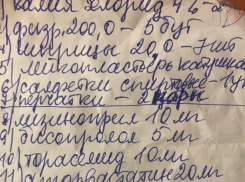 калия хлорид 4%
4) физр. 200,0 - 5 бут
4 шприцы 20,0 - 7 шт
5 лейкопластырь
6) салфетки
7 перчатки - 2 пары
8 лизиноприл 10 мг
9) бисопролол 5 мг
10) торасемид 10 мг
11 аторвастатин 20 мг